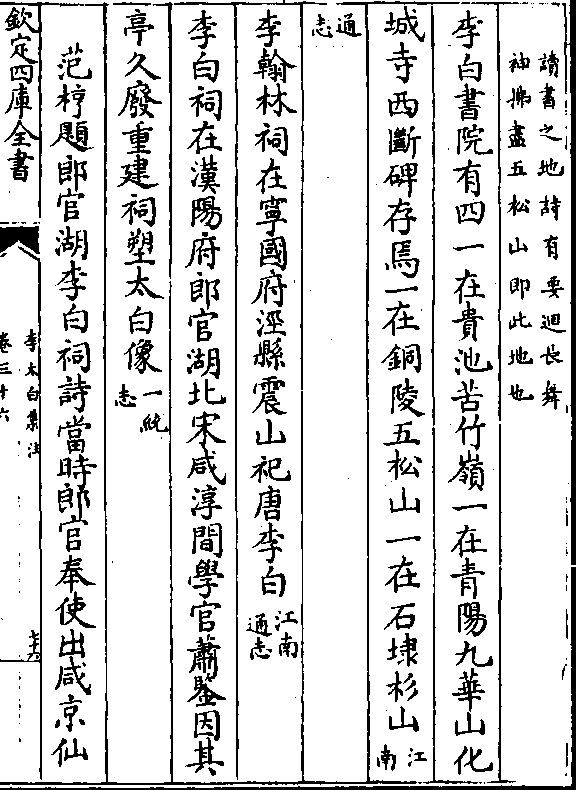 讀書之地詩有要迴長舞
袖拂盡五松山即此地也
李白書院有四一在貴池苦竹嶺一在青陽九華山化
城寺西斷碑存焉一在銅陵五松山一在石埭杉山江南
通志
李翰林祠在寧國府涇縣震山祀唐李白江南通志
李白祠在漢陽府郎官湖北宋咸淳間學官蕭鑒因其
亭久廢重建祠塑太白像一統志
范梈題郎官湖李白祠詩當時郎官奉使出咸京仙
欽定四庫全書
李太白集注
卷三十六
七十六